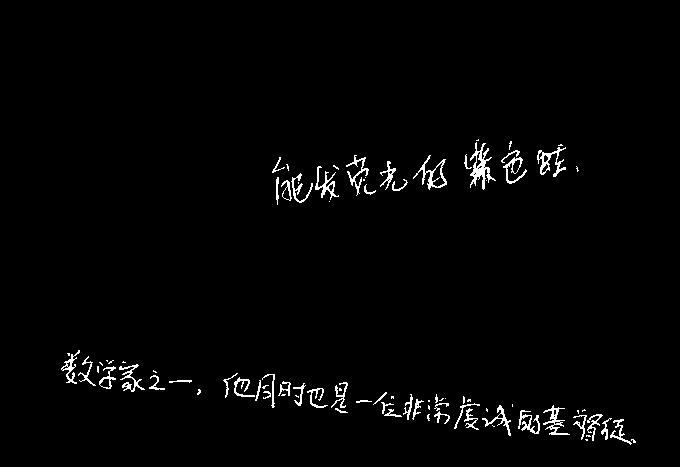 能发荧光的紫色蛙、
数学家之一，他同时也是一位非常虔诚的基督徒。